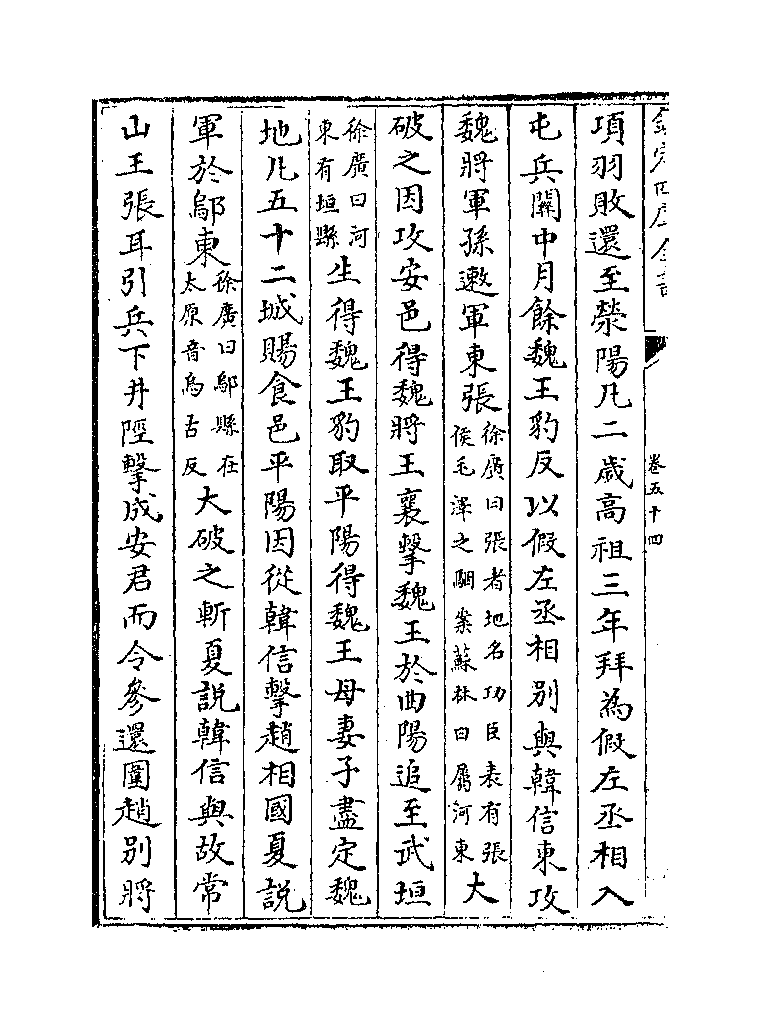 欽定四庫全書
卷五十四
項羽敗還至滎陽凡二歲高祖三年拜為假左丞相入
屯兵關中月餘魏王豹反以假左丞相別與韓信東攻
魏將軍孫遫軍東張徐廣曰張者地名功臣表有張侯毛澤之駰案蘇林曰屬河東大
破之因攻安邑得魏將王襄擊魏王於曲陽追至武垣
徐廣曰河東有垣縣生得魏王豹取平陽得魏王母妻子盡定魏
地凡五十二城賜食邑平陽因從韓信擊趙相國夏說
軍於鄔東徐廣曰鄔縣在太原音烏古反大破之斬夏說韓信與故常
山王張耳引兵下井陘擊成安君而令參還圍趙別將